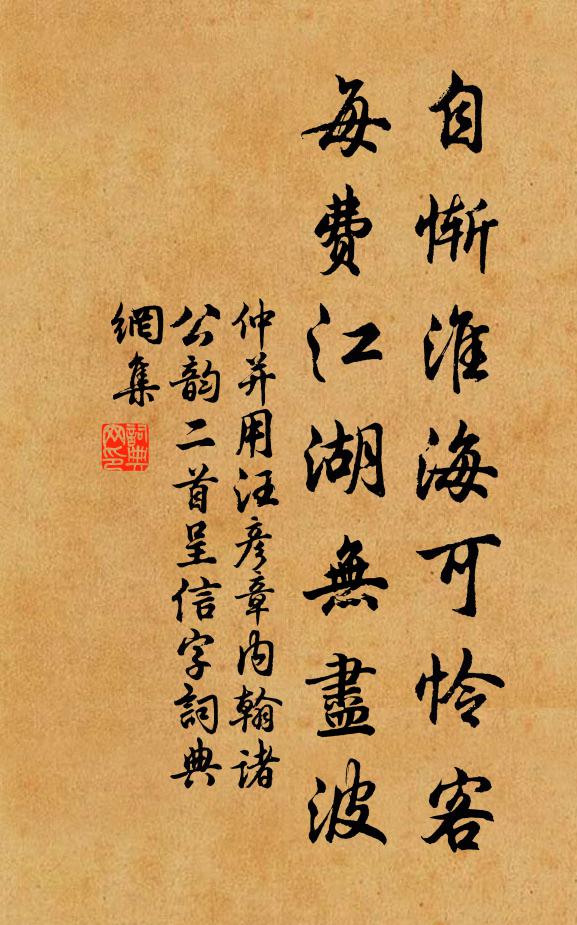 自惭淮海可怜客
每費江湖無盡波
仲并用汪彦章内翰諸
公韵二首呈信字詞典
網集
詞典
网印